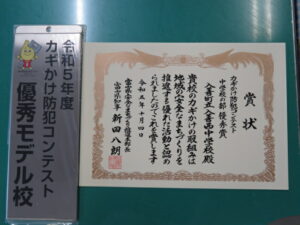 令和5年度
カギかけ防犯コンテスト
優秀モデル校
賞状
カギかけ防犯コンテスト
中学校の部 優秀賞
入善町立入善西中学校殿
貴校のカギかけの取組みは
地域の安全なまちづくりを
推進する優れた活動と認め
られましたのでこれを賞します
令和五年十月四日
富山県安全なまちづくり推進本部長
富山県知事 新田八朗